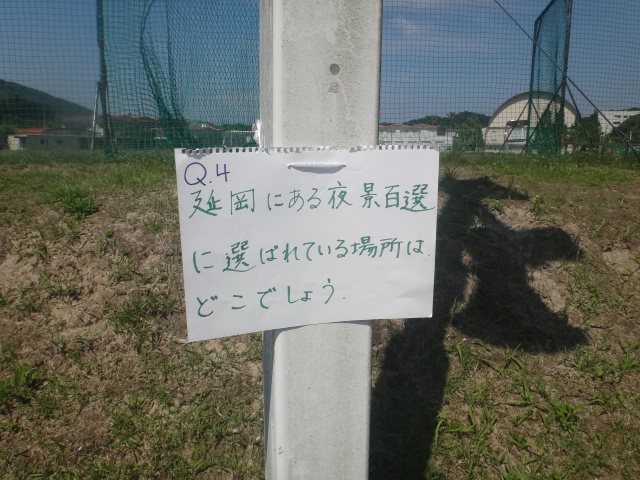 Q.4
延岡にある夜景百選
に選ばれている場所は
どこでしょう.